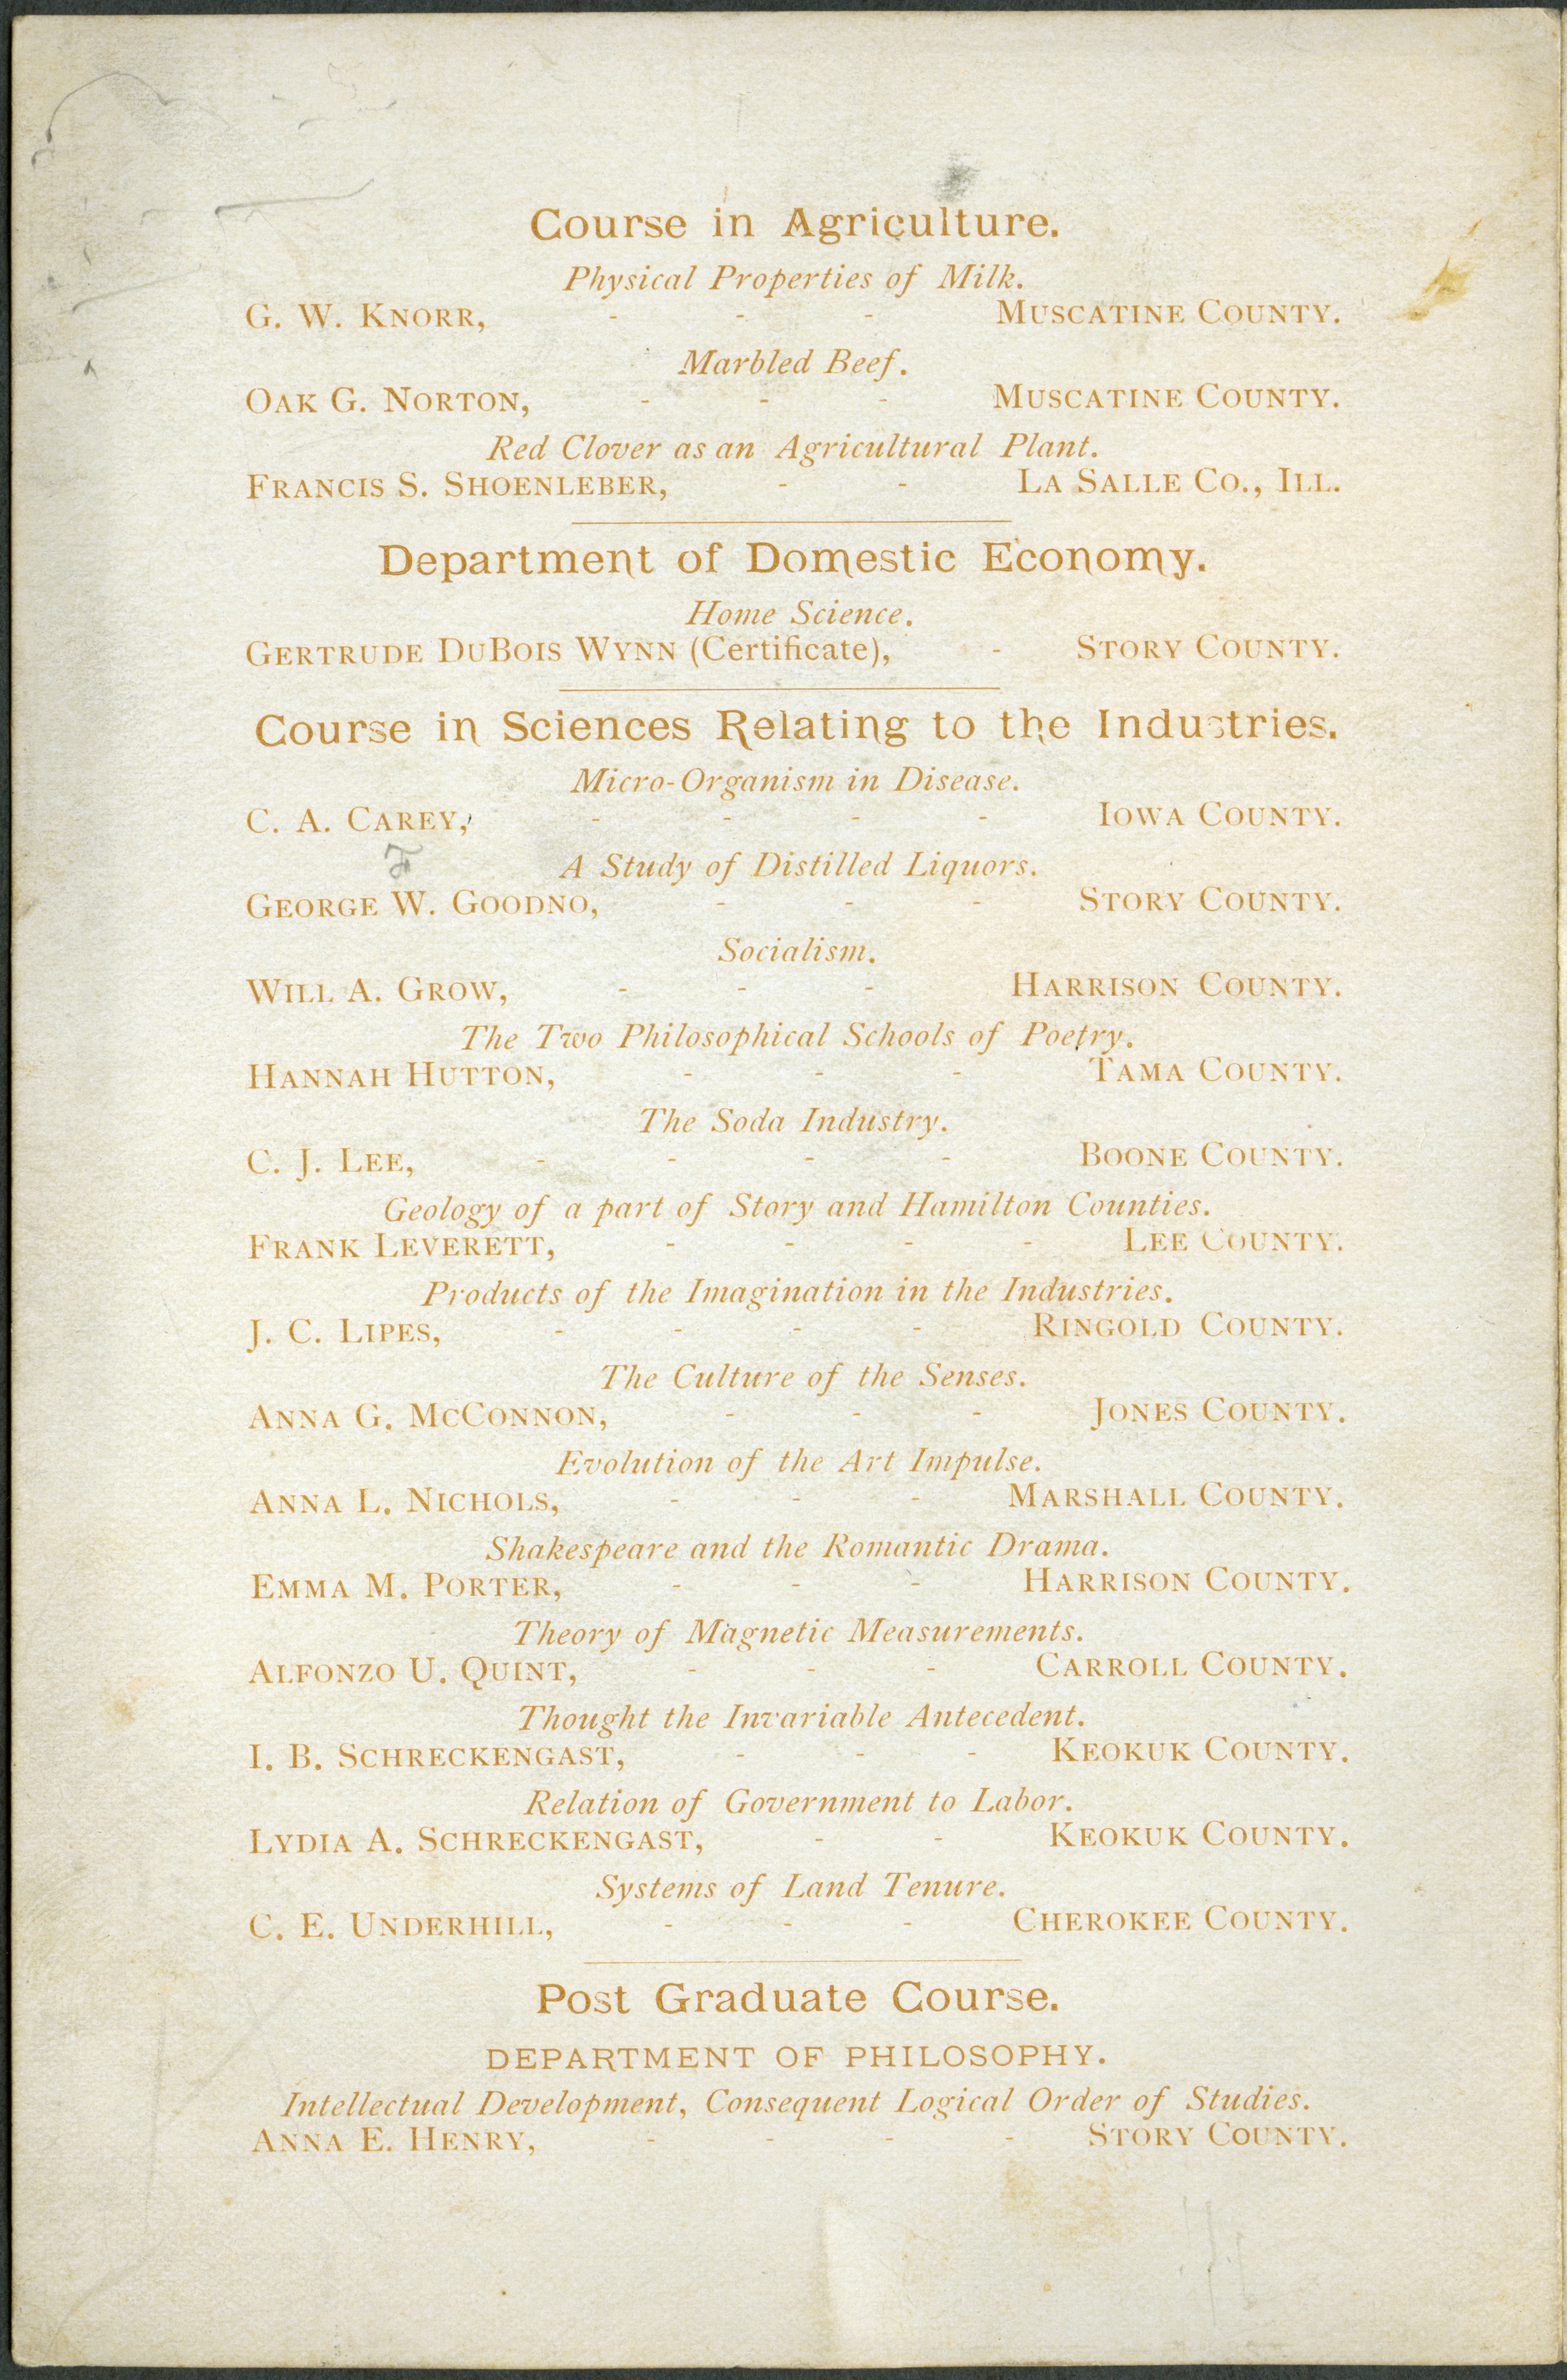 Course in Agriculture.
Physical Properties of Milk.
G. W. Knorr, - - - Muscatine County.
Marbled Beef.
Oak G. Norton, - - - Muscatine County.
Red Clover as an Agricultural Plant.
Francis S. Shoenleber, - - La Salle Co., Ill.
Department of Domestic Economy.
Home Science.
Gertrude DuBois Wynn (Certificate), - Story County.
Course in Sciences Relating to the Industries.
Micro-Organism in Disease.
C. A. Carey, - - - - Iowa County.
A Study of Distilled Liquors.
George W. Goodno, - - - Story County.
Socialism.
Will A. Grow, - - - Harrison County.
The Two Philosophical Schools of Poetry.
Hannah Hutton, - - - Tama County.
The Soda Industry.
C. J. Lee, - - - - Boone County.
Geology of a part of Story and Hamilton Counties.
Frank Leverett, - - - - Lee County.
Products of the Imagination in the Industries.
J. C. Lipes, - - - - Ringold County.
The Culture of the Senses.
Anna G. McConnon, - - - Jones County.
Evolution of the Art Impulse.
Anna L. Nichols, - - - Marshall County.
Shakespeare and the Romantic Drama.
Emma M. Porter, - - - Harrison County.
Theory of Magnetic Measurements.
Alfonzo U. Quint, - - - Carroll County.
Thought the Invariable Antecedent.
I. B. Schreckengast, - - - Keokuk County.
Relation of Government to Labor.
Lydia A. Schreckengast, - - Keokuk County.
Systems of Land Tenure.
C. E. Underhill, - - - Cherokee County.
Post Graduate Course.
DEPARTMENT OF PHILOSOPHY.
Intellectual Development, Consequent Logical Order of Studies.
Anna E. Henry, - - - - Story County.